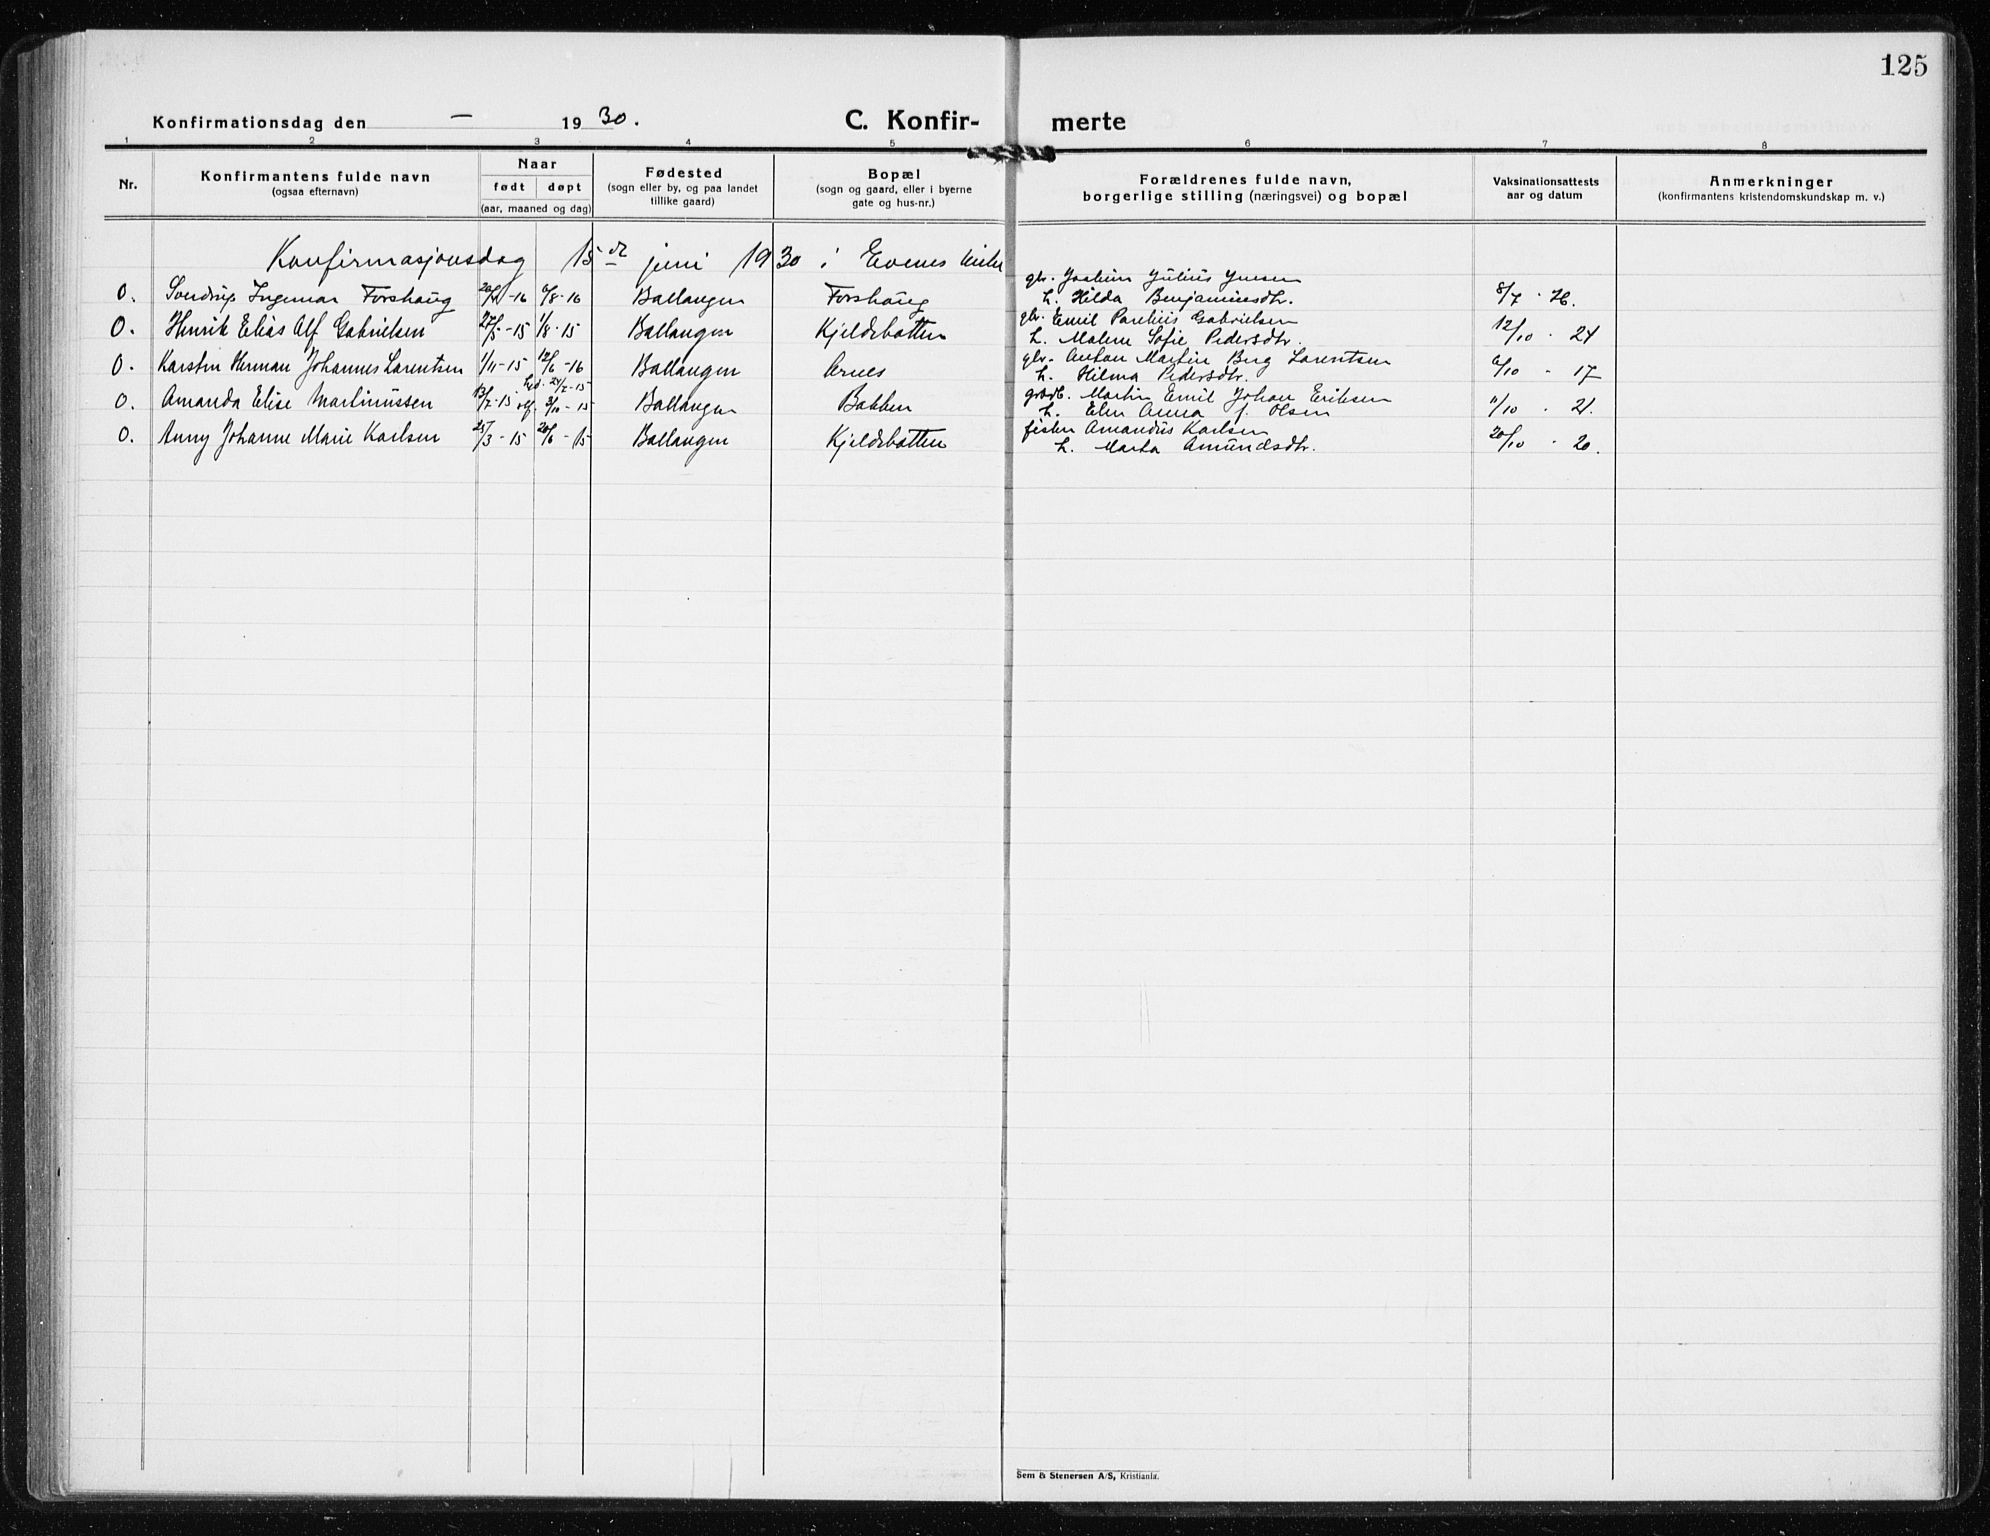 125
Konfirmationsdag den – 1930. C. Konfir- merte
1 2 3 4 5 6 7 8
Nr.
Konfirmantens fulde navn
(ogsaa efternavn)
Naar
født døpt
(aar, maaned og dag)
Fødested
(sogn eller by, og paa landet
tillike gaard)
Bopæl
(sogn og gaard, eller i byerne
gate og hus-nr.)
Forældrenes fulde navn,
borgerlige stilling (næringsvei) og bopæl
Vaksinationsattests
aar og datum
Anmerkninger
(konfirmantens kristendomskundskap m. v.)
Konfirmasjonsdag 15de juni 1930 i Evenes kirke
0. Ingemar Forshaug -16 6/8-16 Ballangen Forshaug gbr. Joakim Julius Jensen
h. Hilda Benjaminsdtr. 8/7 · H.
0. Henrik Elias Alf Gabrielsen 27/5-15 1/8-15 Ballangen Kjeldebotten gbr. Emil Parelius Gabrielsen
h. Malene Sofie Pedersdtr. 12/10 · 24
0. Karsten Herman Johannes Larentsen 1/11-15 12/6-16 Ballangen Arnes gbr. Anton Martin Berg Larentsen
h. Hilma Pedersdtr. 6/10 - 17
0. Amanda Elise Martinussen 13/7-15 hd. 24/7-15
stf. 3/10-15 Ballangen Bakken Martin Emil Johan Eriksen
h. Elen Anna f. Olsen 11/10 · 21.
0. Anny Johanne Marie Karlsen 25/3-15 20/6-15 Ballangen Kjeldebotten fisker Amandus Karlsen
h. Marta Amundsdtr. 20/10 · 20.
Sem & Stenersen A/S, Kristiania.